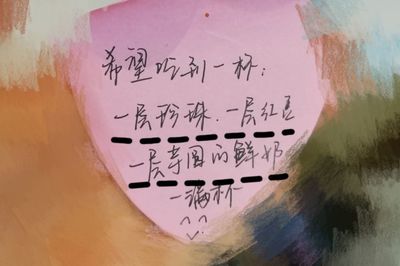 希望吃到一杯:
一层珍珠.一层红豆
一层芋圆的鲜奶
一满杯